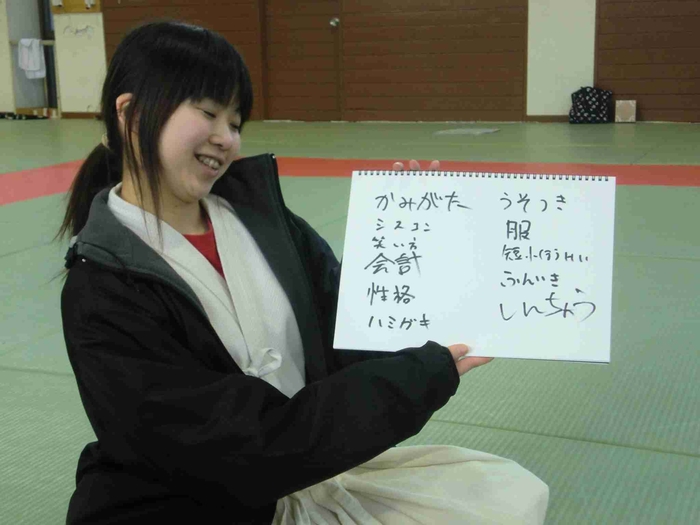 かみがた
シスコン
笑い方
会計
性格
ハミガキ
うそつき
服
ふんいき
しんちょう